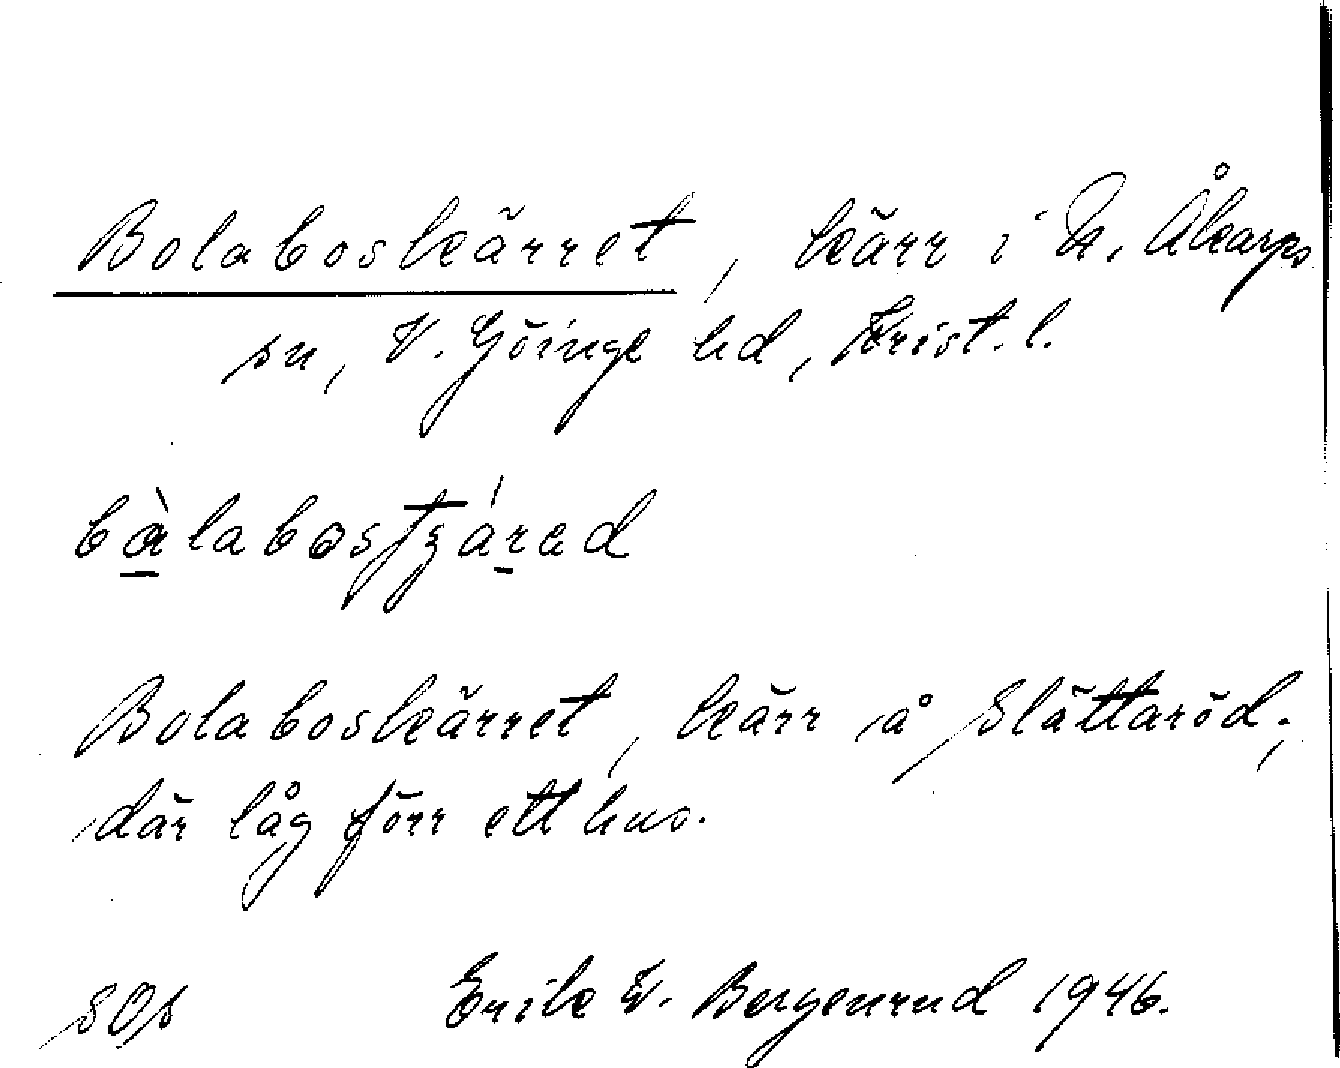 Bolaboskärret, kärr i N. Åkarps
sn, V. Göinge hd, Krist. l.
bàlabostʒárad
Bolaboskärret, kärr å Slättaröd;
där låg förr ett hus.
SOs Erik F. Bergenrud 1946.